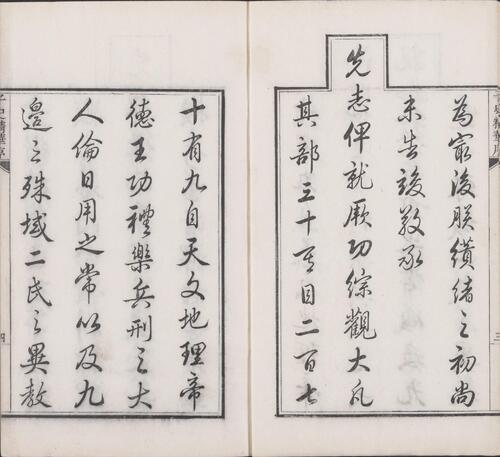 為最後朕纘緒之初尚
未告竣敬承
先志俾就厥功綜觀大凡
其部三十其目二百七
十有九自天文地理帝
德王功禮樂兵刑之大
人倫日用之常以及九
邊之殊域二氏之異教
子史精華序
四
三